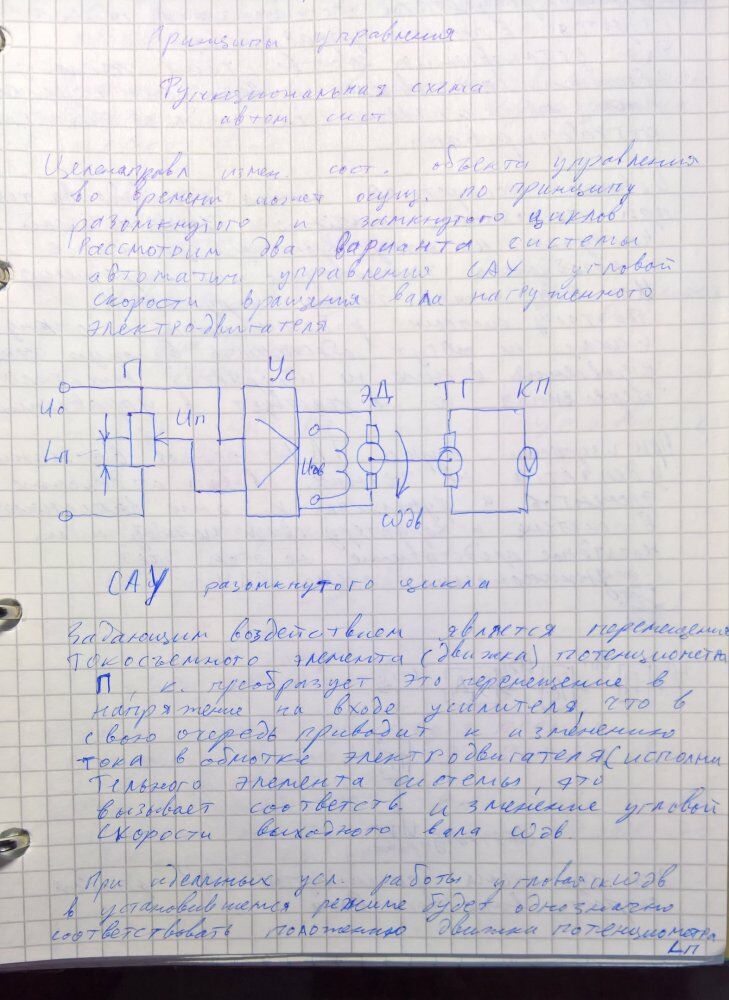 Принципы управления
Функциональная схема
автом. сист
Целенаправл измен. сост. объекта управления
во времени может осущ. по принципу
разомкнутого и замкнутого циклов
Рассмотрим два варианта системы
автоматич. управления САУ угловой
скорости вращения вала нагруженного
электродвигателя
П Ус ЭД ТГ КП
U₀ Uп
Lп Uдв V
ωдв
САУ разомкнутого цикла
Задающим воздействием является перемещения
токосъемного элемента (движка) потенциометра
П, к. преобразует это перемещение в
напряжение на входе усилителя, что в
свою очередь приводит к изменению
тока в обмотке электродвигателя (исполни
тельного элемента системы, это
вызывает соответств. изменение угловой
скорости выходного вала ωдв.
При идеальных усл. работы угловой ск ωдв
в установившемся режиме будет однозначно
соответствовать положению движка потенциометра
Lп